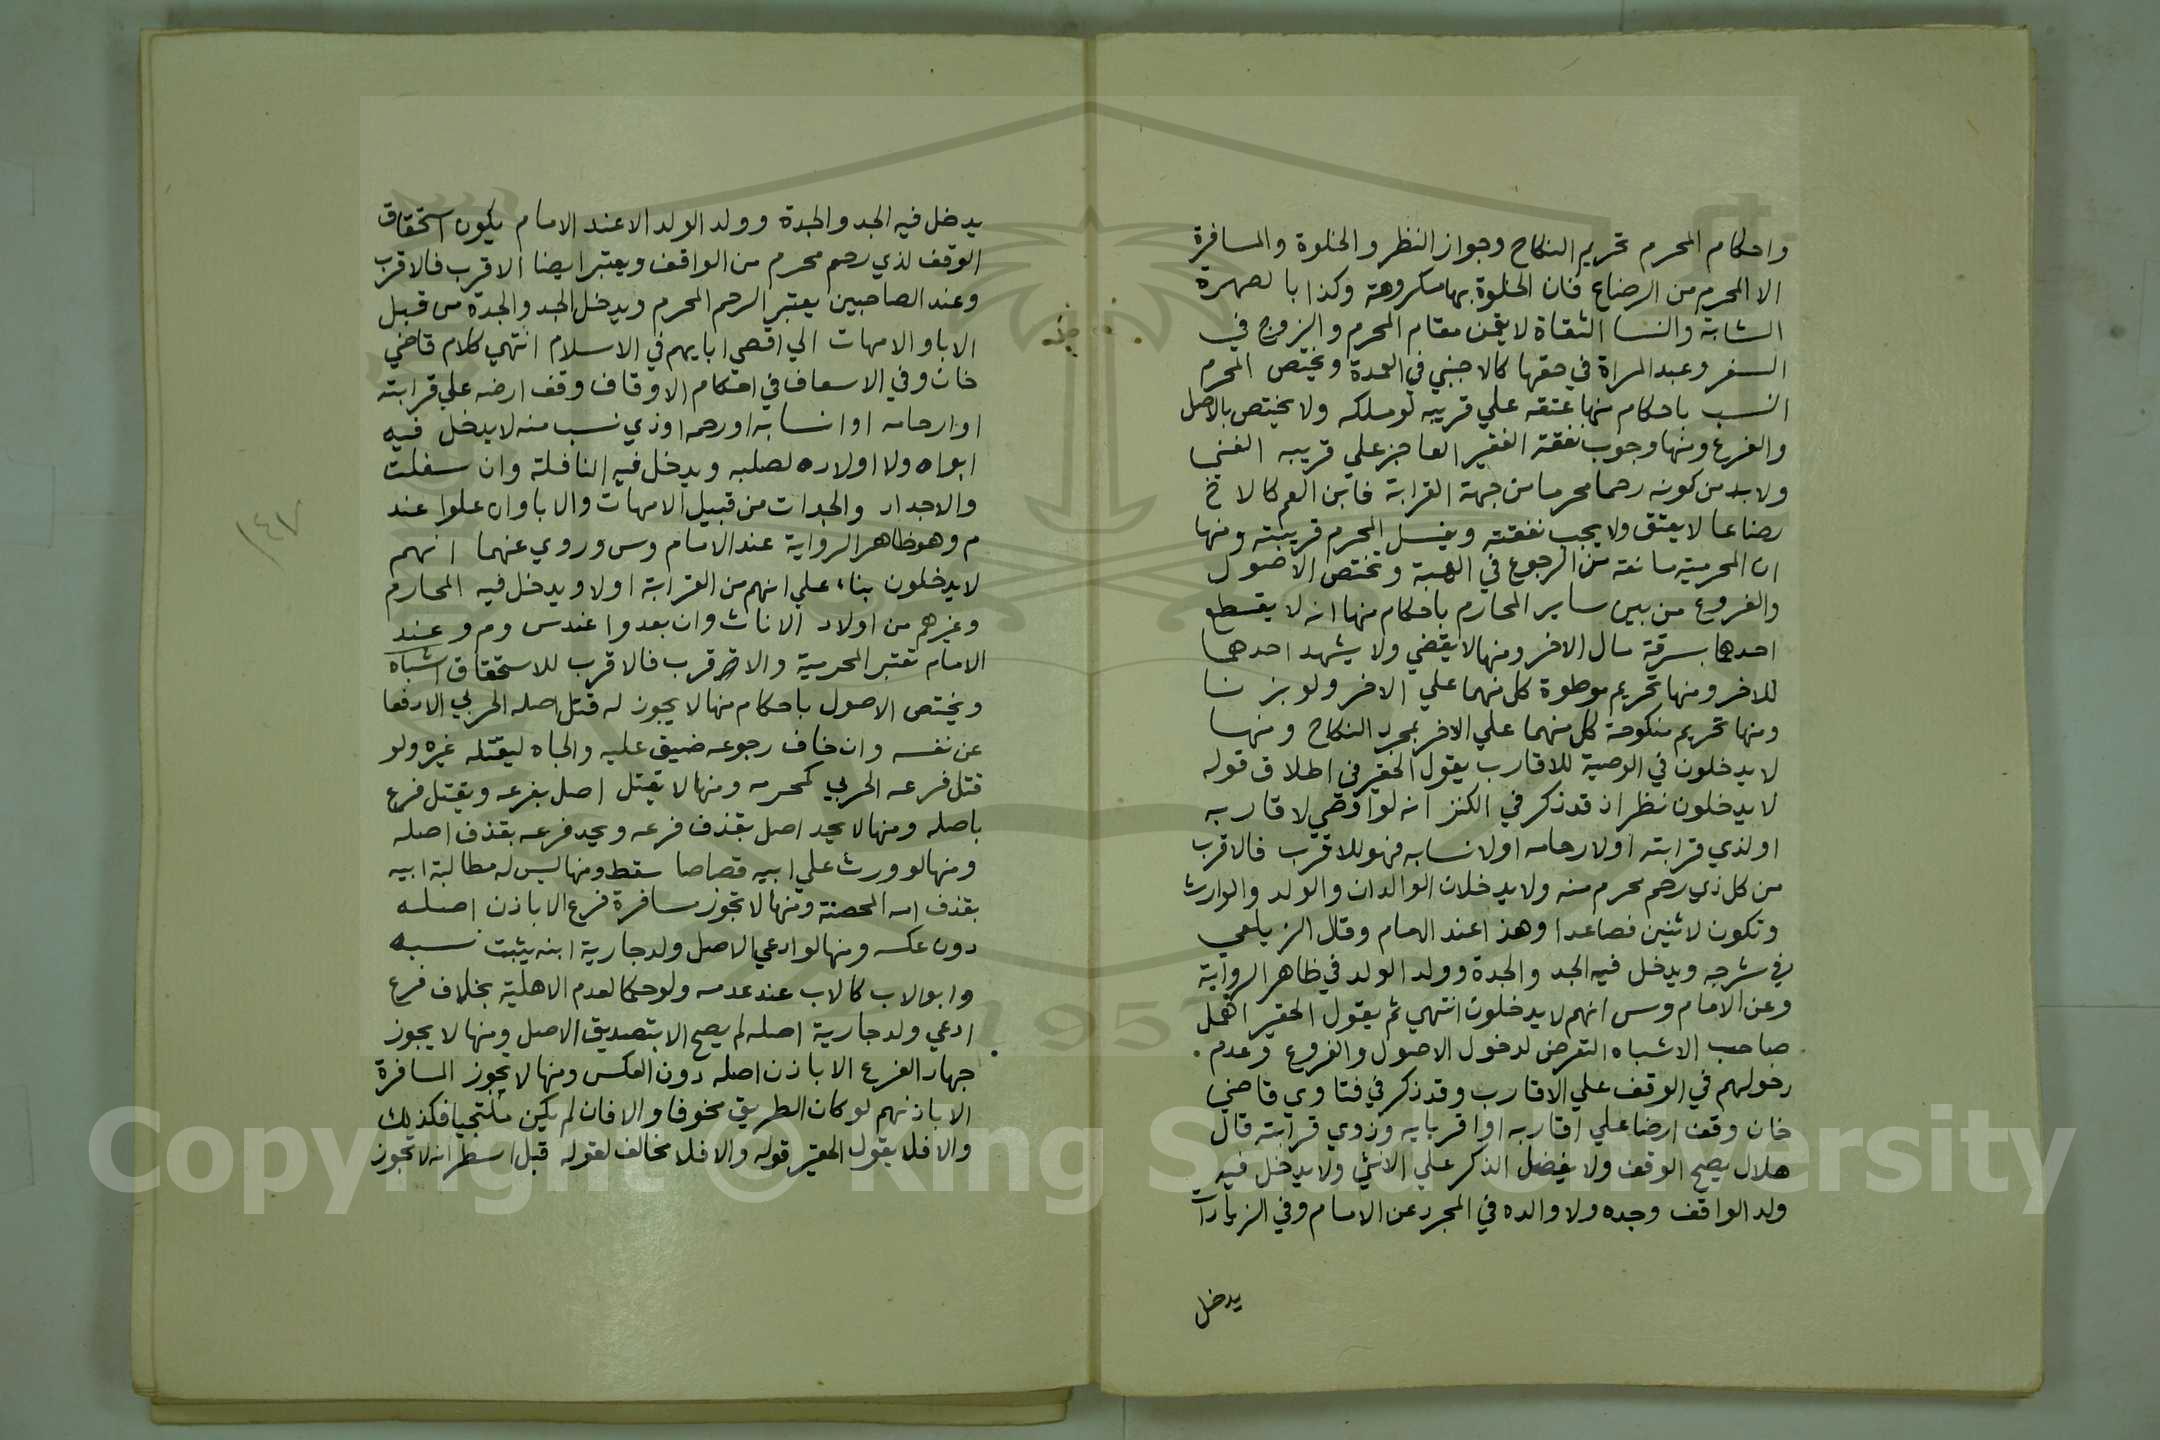 واحكام المحرم تحريم النكاح وجواز النظر والخلوة والمسافرة
الا المحرم من الرضاع فان الخلوة بها مكروهة وكذا بالصهرة
الشابة والنسا الثقاة لا يقمن مقام المحرم والزوج في
السفر وعبد المراة في حقها كالاجنبي في العدة ويختص المحرم
النسب باحكام منها عتقه علي قريبه لو ملكه ولا يختص بالاصل
والفرع ومنها وجوب نفقة الفقير العاجز علي قريبه الغني
ولا بد من كونه رحما محرما من جهة القرابة فابن العم كالاخ
رضاعا لا يعتق ولا يجب نفقته ويغسل المحرم قريبته ومنها
ان المحرمية مانعة من الرجوع في الهبة وتختص الاصول
والفروع من بين ساير المحارم باحكام منها انه لا يقطع
احدهما بسرقة مال الاخر ومنها لا يقضي ولا يشهد احدهما
للاخر ومنها تحريم موطوة كل منهما علي الاخر ولو بزنا
ومنها تحريم منكوحة كل منهما علي الاخر بمجرد النكاح ومنها
لا يدخلون في الوصية للاقارب يقول الحقير في اطلاق قوله
لا يدخلون نظر اذ قد ذكر في الكنز انه لو اوصي لاقاربه
او لذي قرابته او لارحامه او لانسابه فهو للاقرب فالاقرب
من كل ذي رحم محرم منه ولا يدخلان الوالدان والولد والوارث
وتكون لاثنين فصاعدا وهذا عند الامام وقال الزيلعي
في شرحه ويدخل فيه الجد والجدة وولد الولد في ظاهر الرواية
وعن الامام وس انهم لا يدخلون انتهي ثم يقول الحقير اهمل
صاحب الاشباه التعرض لدخول الاصول والفروع وعدم
دخولهم في الوقف علي الاقارب وقد ذكر في فتاوي قاضي
خان وقف ارضا علي اقاربه او اقربايه وذوي قرابته قال
هلال يصح الوقف ولا يفضل الذكر علي الانثي ولا يدخل فيه
ولد الواقف وجده ولا والده في المجرد عن الامام وفي الزيادات
يدخل
يدخل فيه الجد والجدة وولد الولد الا عند الامام يكون استحقاق
الوقف لذي رحم محرم من الواقف ويعتبر ايضا الاقرب فالاقرب
وعند الصاحبين يعتبر الرحم المحرم ويدخل الجد والجدة من قبل
الابا والامهات الي اقصي ابايهم في الاسلام انتهي كلام قاضي
خان وفي الاسعاف في احكام الاوقاف وقف ارضه علي قرابته
او ارحامه او انسابه او رحمه او ذي نسب منه لا يدخل فيه
ابواه ولا اولاده لصلبه ويدخل فيه النافلة وان سفلت
والاجداد والجدات من قبيل الامهات والابا وان علوا عند
م وهو ظاهر الرواية عند الامام وس وروي عنهما انهم
لا يدخلون بناء علي انهم من القرابة اولا ويدخل فيه المحارم
وغيرهم من اولاد الاناث وان بعدوا عند س وم وعند
الامام تعتبر المحرمية والاقرب فالاقرب للاستحقاق اشباه
ويختص الاصول باحكام منها لا يجوز له قتل اصله الحربي الا دفعا
عن نفسه وان خاف رجوعه ضيق عليه والجاه ليقتله غيره ولو
قتل فرعه الحربي كمحرمه ومنها لا يقتل اصل بفرعه ويقتل فرع
باصله ومنها لا يحد اصل بقذف فرعه ويحد فرعه بقذف اصله
ومنها لو ورث علي ابيه قصاصا سقط ومنها ليس له مطالبة ابيه
بقذف امه المحصنة ومنها لا تجوز مسافرة فرع الا باذن اصله
دون عكسه ومنها لو ادعي الاصل ولد جارية ابنه يثبت نسبه
وابو الاب كالاب عند عدمه ولو حكما لعدم الاهلية بخلاف فرع
ادعي ولد جارية اصله لم يصح الا بتصديق الاصل ومنها لا يجوز
جهاد الفرع الا باذن اصله دون العكس ومنها لا تجوز المسافرة
الا باذنهم لو كان الطريق مخوفا والا فان لم يكن ملتحيا فكذلك
والا فلا يقول الحقير قوله والا فلا مخالف لقوله قبل اسطر انه لا تجوز
١٤٧
Copyright © King Saud University
1957